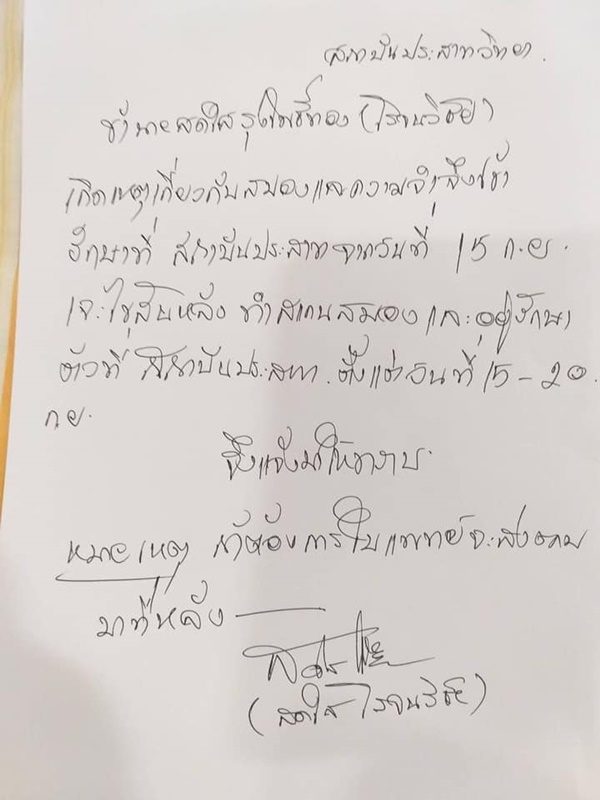 สถาบันประสาทวิทยา
ข้านายสดใส รุ่งโพธิ์ทอง (โรจนวิชัย)
เกิดเหตุเกี่ยวกับสมองและความจำจึงเข้า
รักษาที่ สถาบันประสาทจากวันที่ 15 ก.ย.
เจาะไขสันหลัง ทำสแกนสมอง และอยู่รักษา
ตัวที่ สถาบันประสาท. ตั้งแต่วันที่ 15 - 20
ก.ย.
จึงแจ้งมาให้ทราบ
หมายเหตุ ถ้าต้องการใบแพทย์จะส่งตาม
มาทีหลัง
(สดใส โรจนวิชัย)